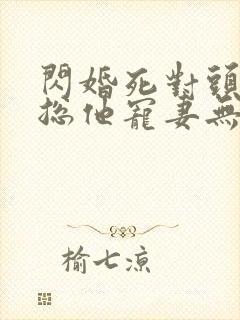 閃婚死對頭
總他寵妻無
榆七涼